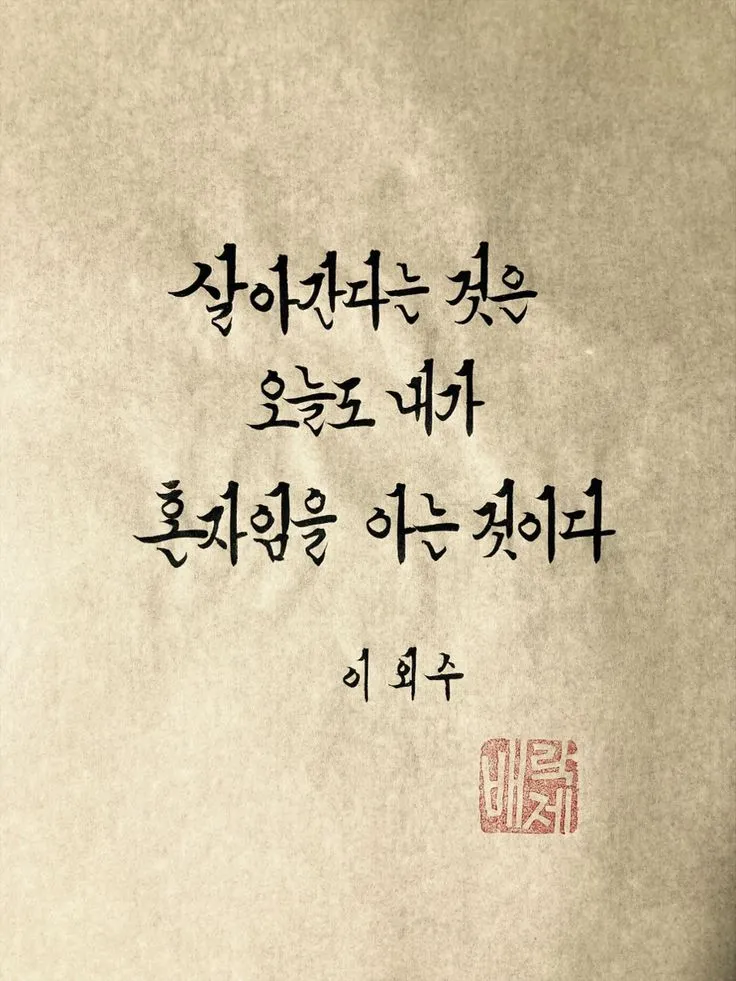 살아간다는 것은
오늘도 내가
혼자임을 아는 것이다
이외수
배락제